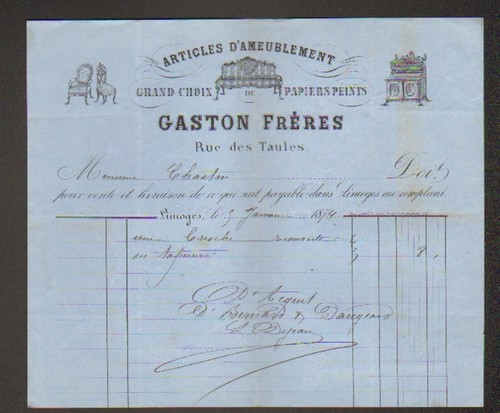 ARTICLES D'AMEUBLEMENT
GRAND CHOIX DE PAPIERS PEINTS
GASTON FRÈRES
Rue des Taules.
Monsieur Chastin Doit
pour vente et livraison de ce qui suit payable dans Limoges au comptant.
Limoges, le 5 Janvier 187
une recouverte
en 8
Pr Acquit